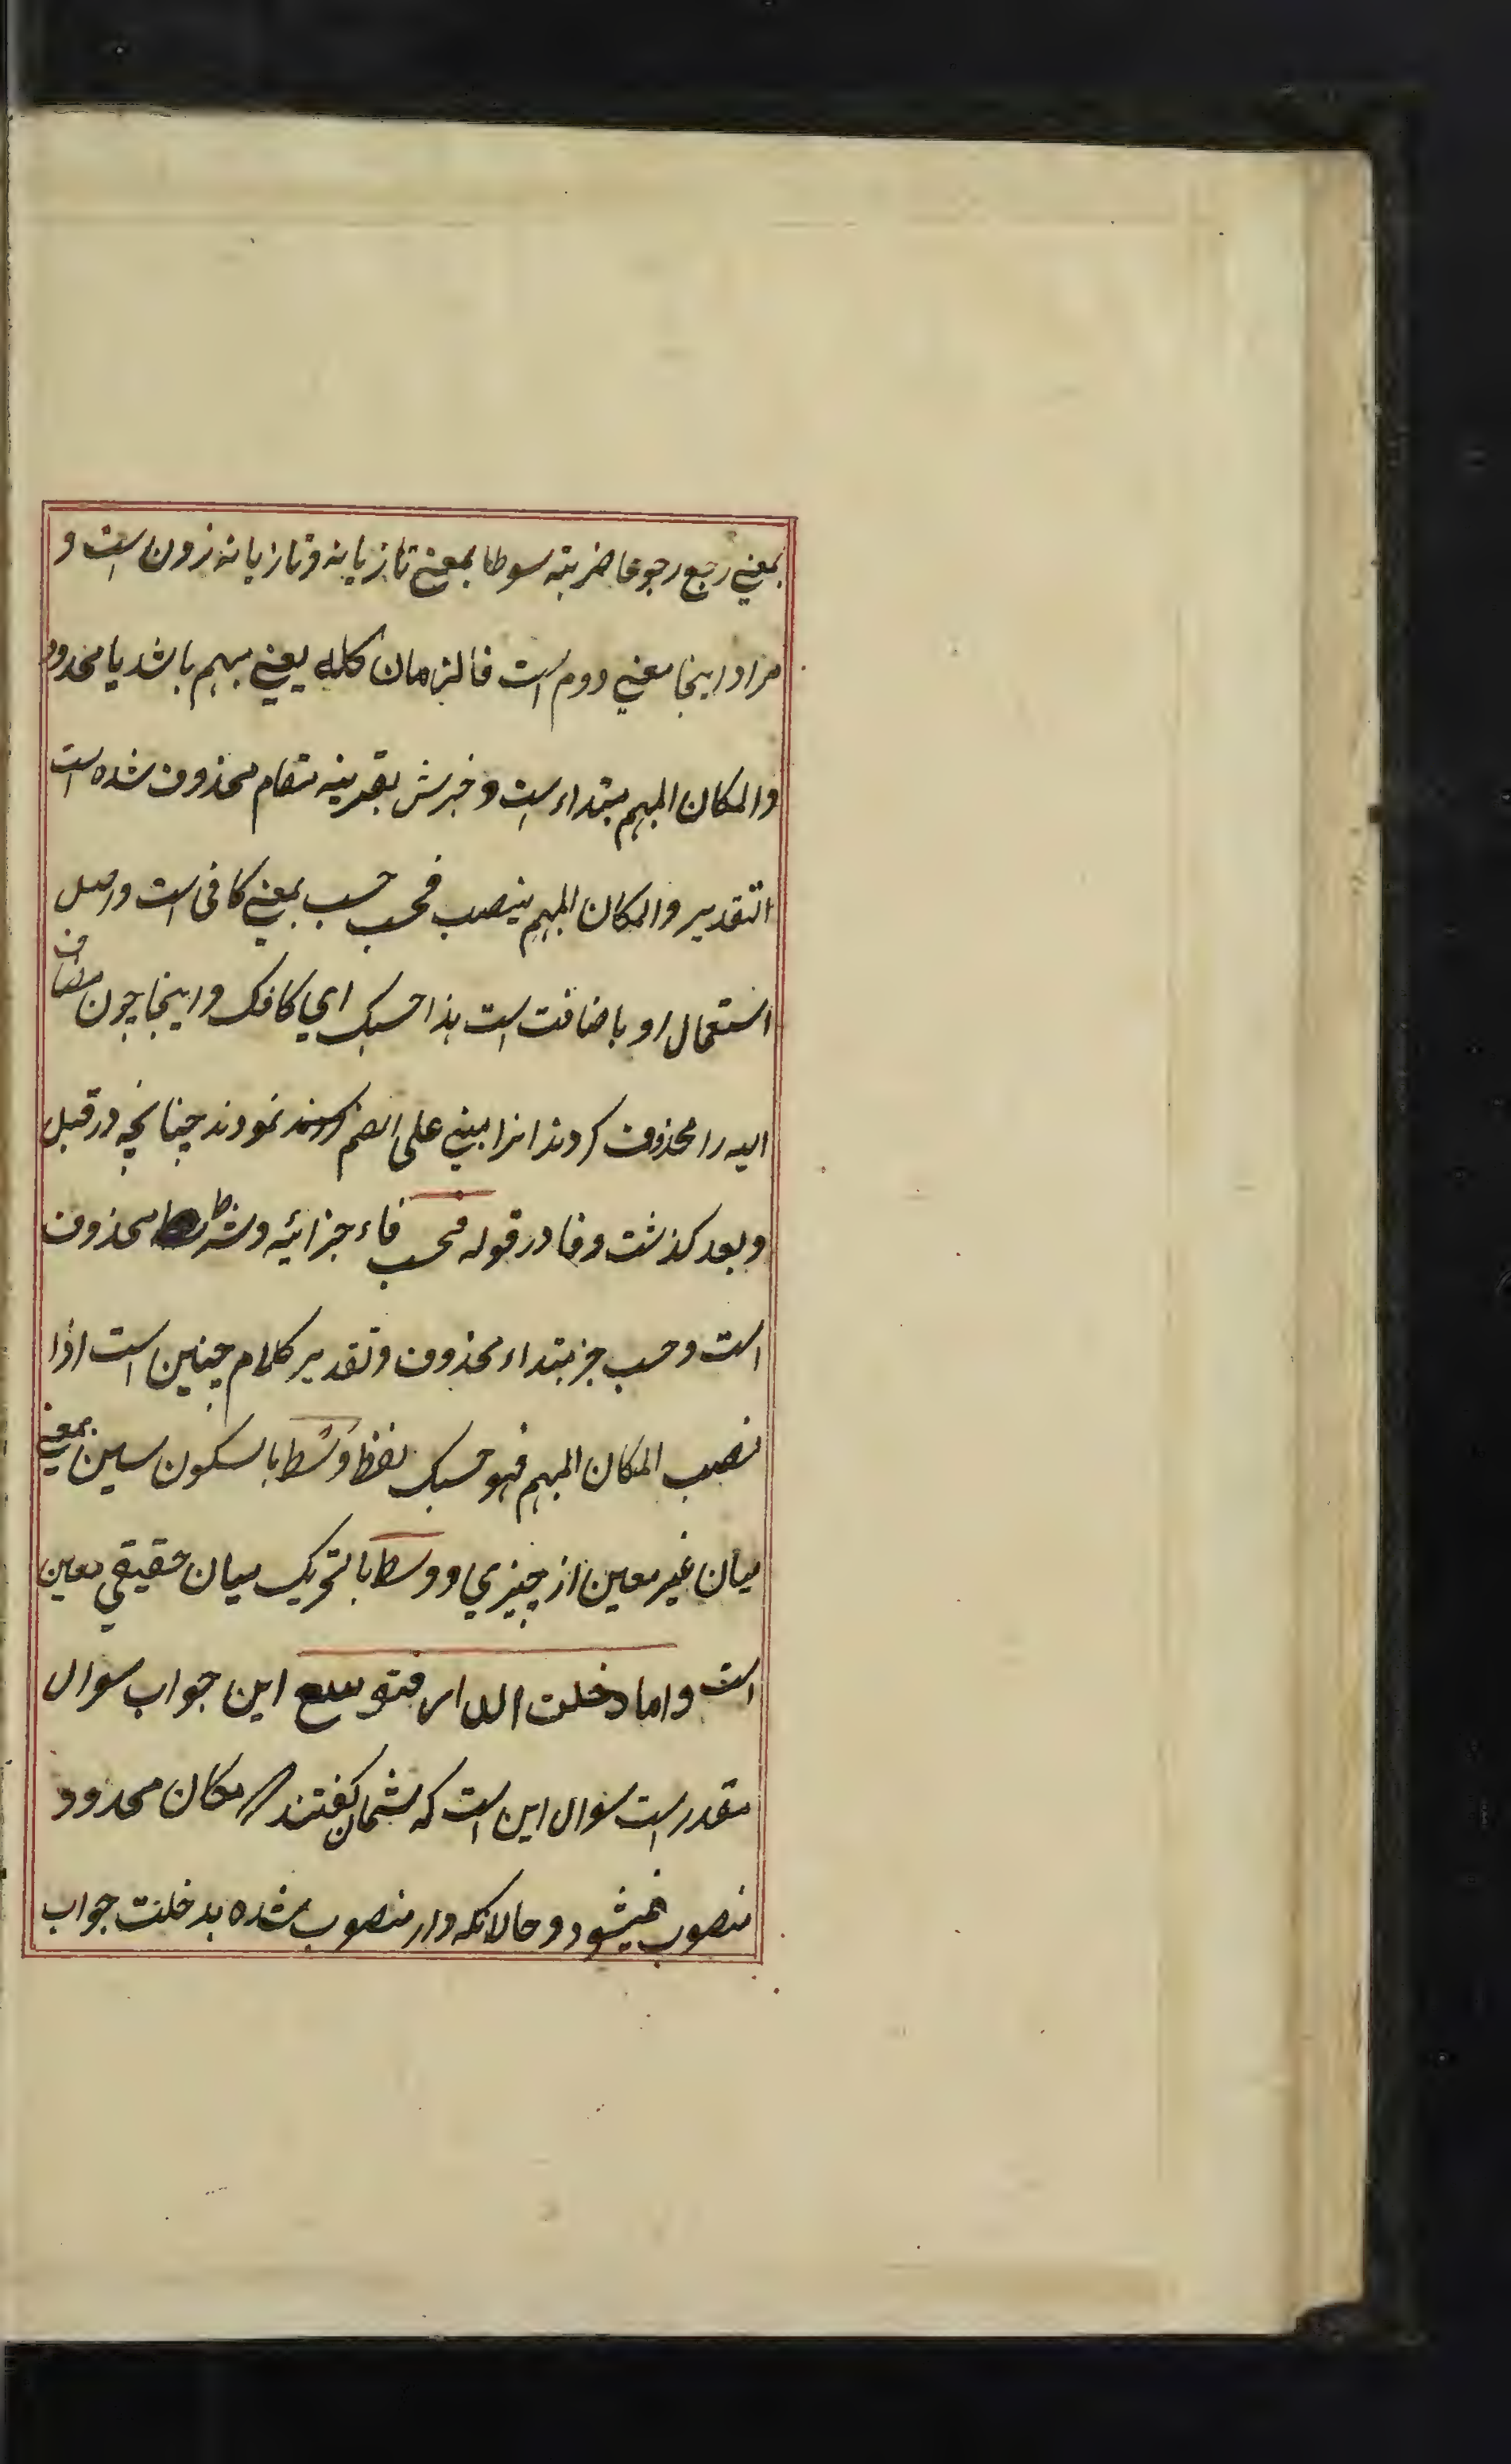 بمعنی رجع رجوعا ضربته سوطا بمعنی تازیانه و تازیانه زدن است و
مراد اینجا معنی دوم است فالزمان کله یعنی مبهم باشد یا محدود
والمکان المبهم مبتداء است و خبرش بقرینه مقام محذوف شده است
التقدیر والمکان المبهم ینصب فحسب حسب بمعنی کافی است و اصل
استعمال او باضافت است هذا حسبک ای کافک و اینجا چون مضاف
الیه را محذوف کردند انرا مبنی علی الضم نمودند چنانچه در قبل
و بعد کذشت و فا در قوله فحسب فاء جزائیه و شرط محذوف
است و حسب خبر مبتداء محذوف و تقدیر کلام چنین است اذا
نصب المکان المبهم فهو حسبک لفظ وسط با سکون سین بمعنی
میان غیر معین از چیزی و وسط بالتحریک میان حقیقی معین
است و اما دخلت الدار فتوسع این جواب سوال
مقدر است سوال این است که شمان کفتند مکان محدود
منصوب نمیشود و حالانکه دار منصوب شده بدخلت جواب